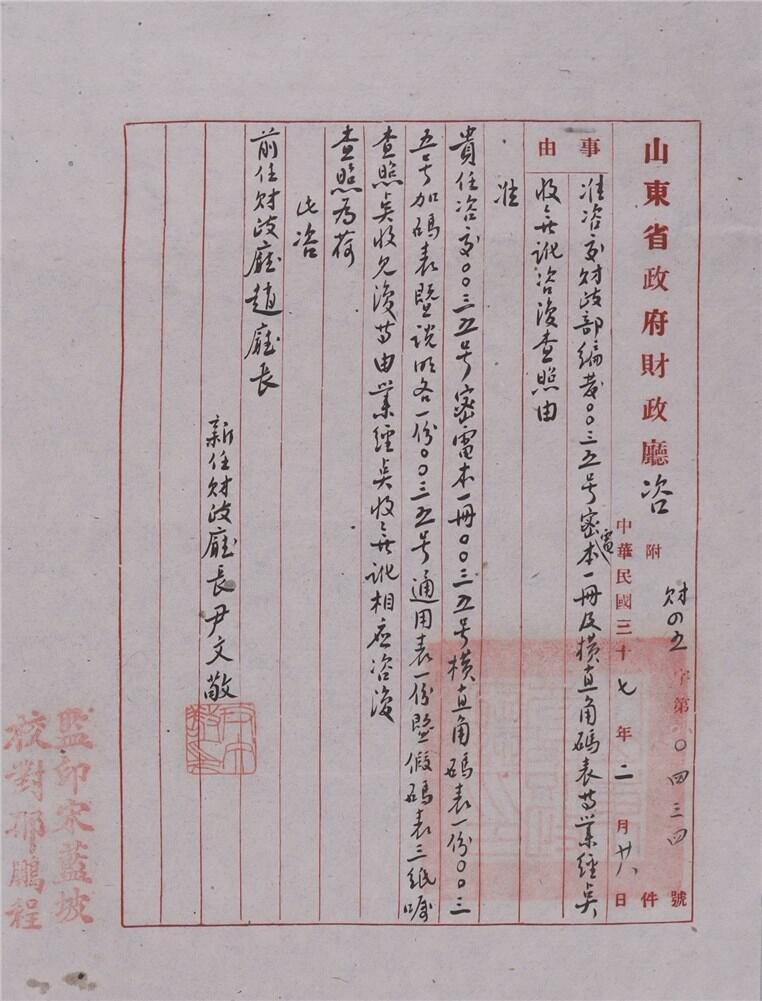 山東省政府財政廳咨
附 件
財四五字第〇四三四號
中華民國三十七年二月廿八日
事由
准咨交財政部編發〇〇三五号密電本一冊及橫直角碼表等業經点
收無訛咨復查照由
准
貴任咨交〇〇三五号密電本一冊〇〇三五号橫直角碼表一份〇〇三
五号加碼表暨說明各一份〇〇三五号通用表一份暨假碼表三紙囑
查照点收見復等由業經点收無訛相應咨復
查照為荷
此咨
前任財政廳趙廳長
新任財政廳長尹文敬
監印宋藍坡
校對邢鵬程